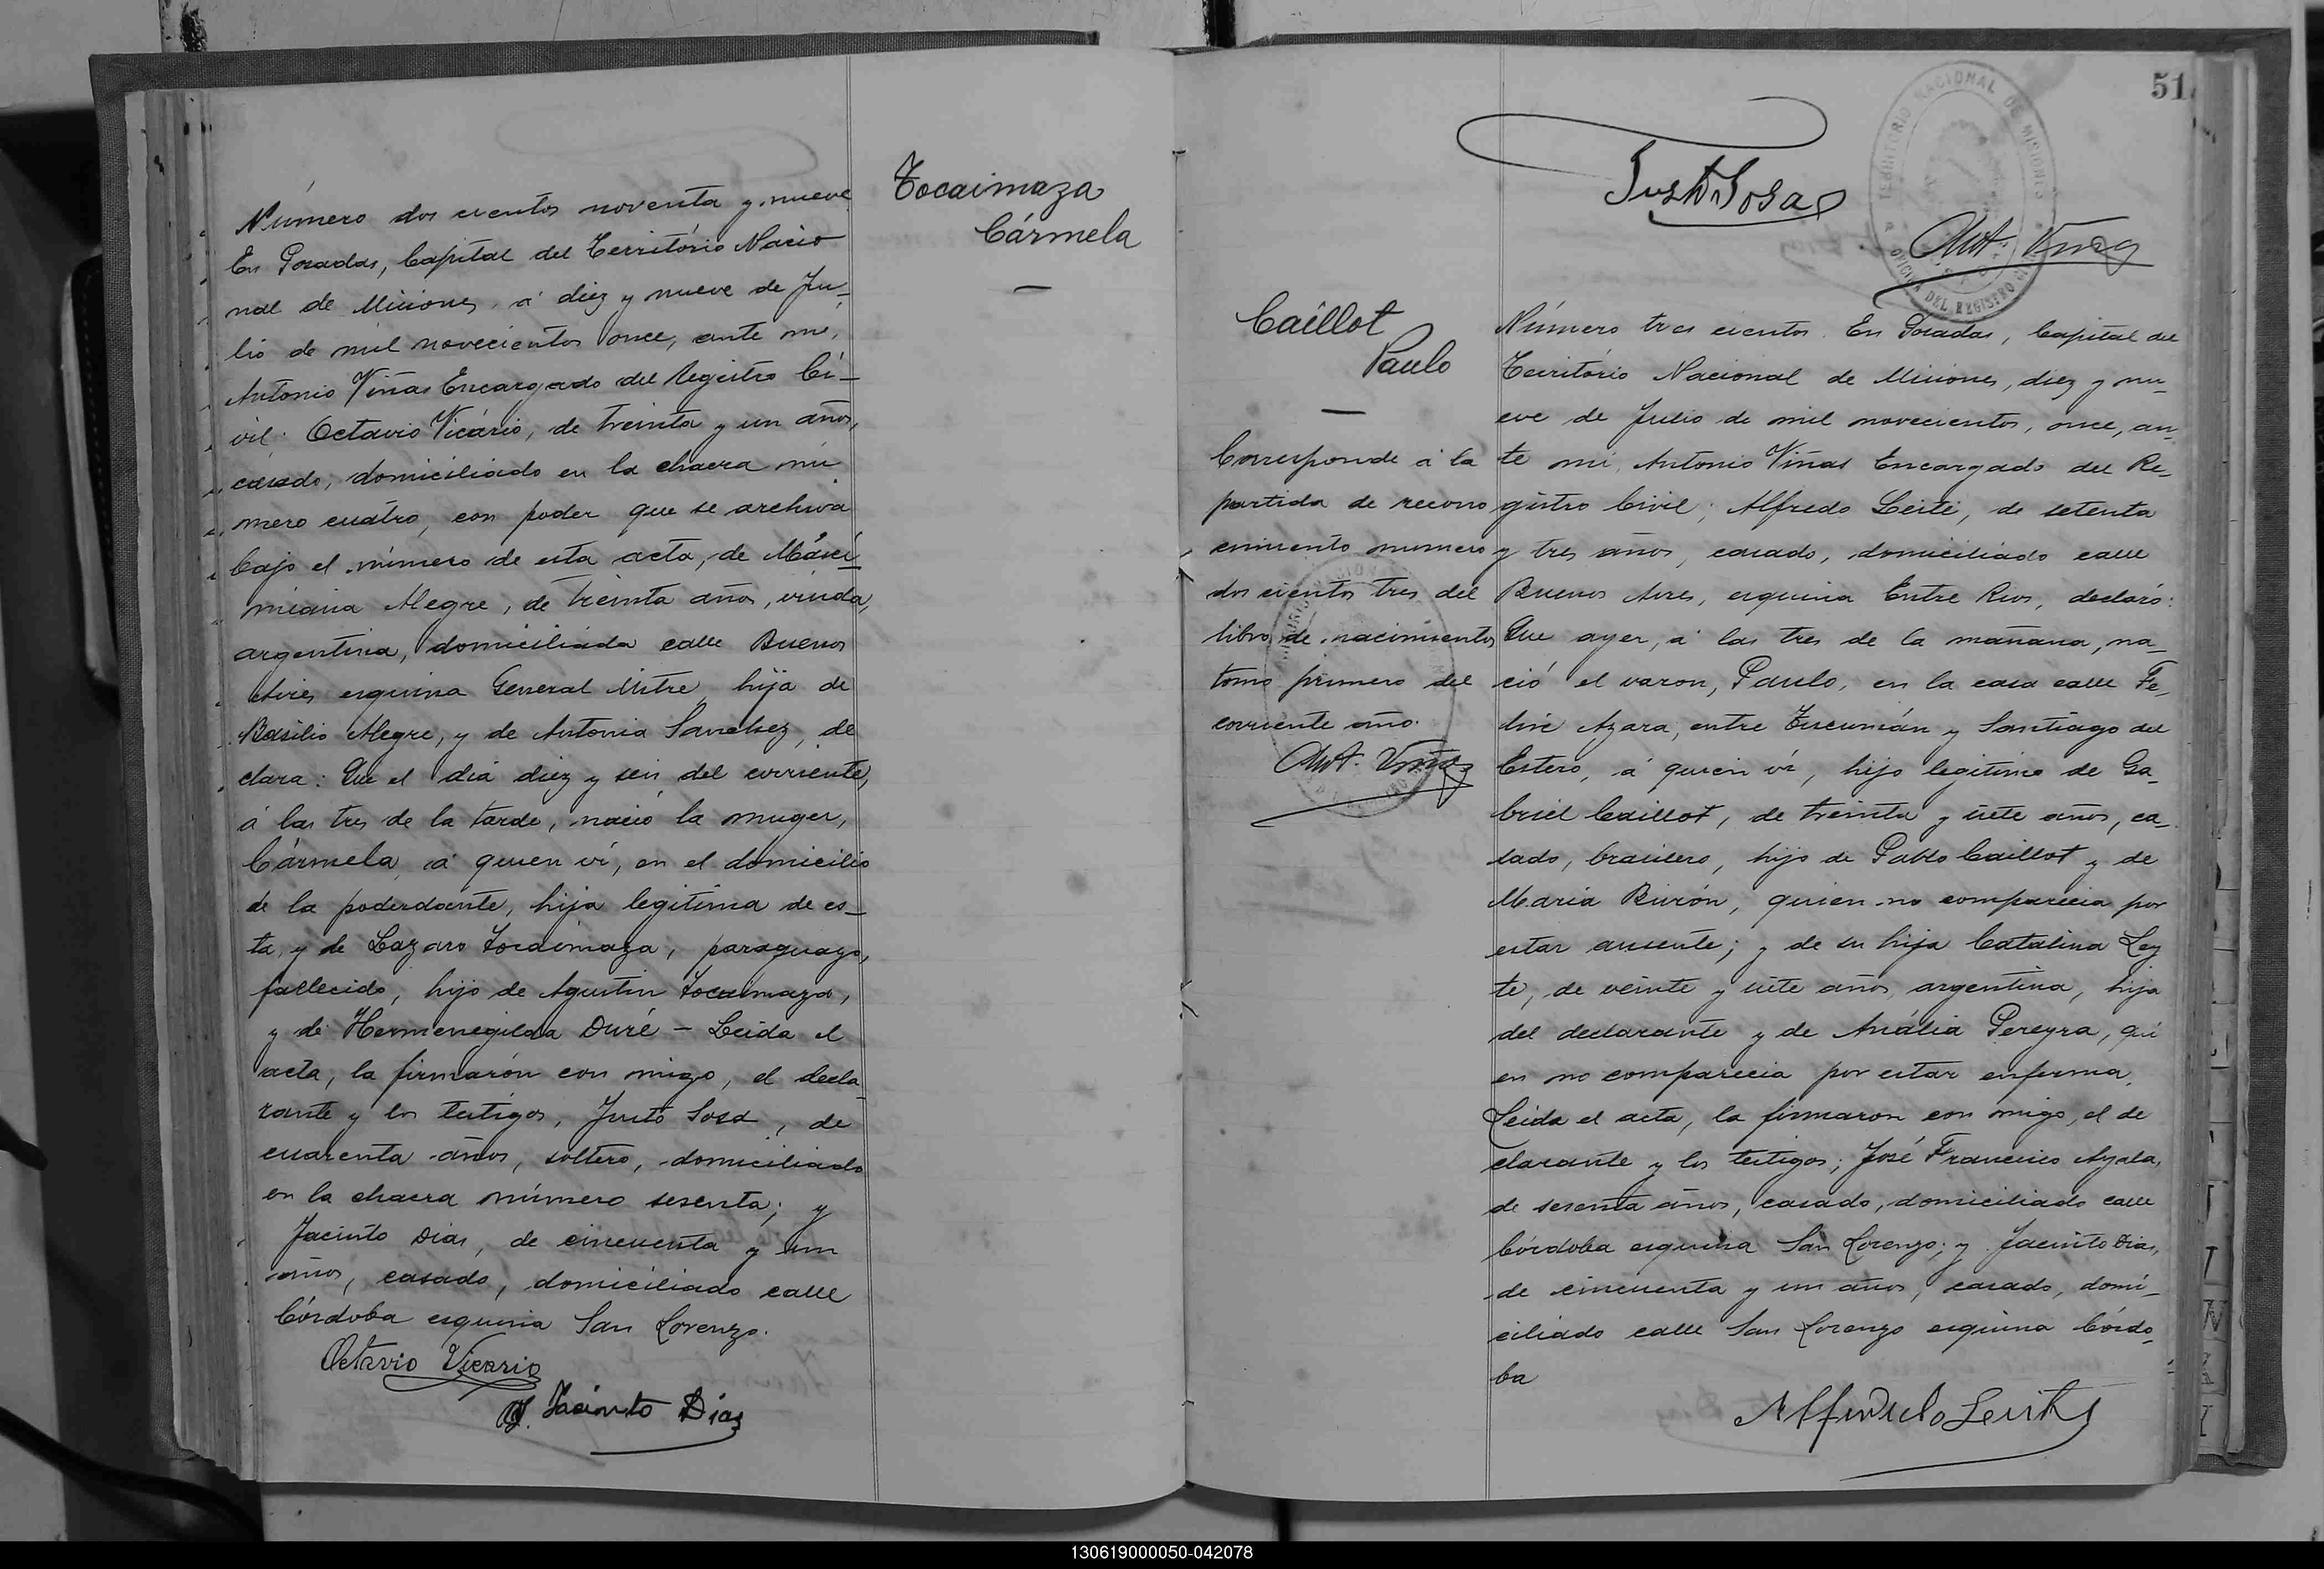 Número dos cientos noventa y nueve
En Posadas, Capital del Território Nacio
nal de Misiones, á diez y nueve de Ju-
lio de mil novecientos once, ante mi,
Antonio Viñas Encargado del Registro Ci-
vil: Octavio Vicário, de treinta y un años,
casado, domiciliado en la chacra nú
mero cuatro, con poder que se archiva
bajo el número de esta acta, de Máxi
miana Alegre, de treinta años, viuda,
argentina, domiciliada calle Buenos
Aires esquina General Mitre, hija de
Basilio Alegre, y de Antonia Sanchez, de
clara: Que el dia diez y seis del corriente,
á las tres de la tarde, nació la muger,
Cármela, á quien ví, en el domicilio
de la poderdante, hija legitima de es-
ta, y de Lazaro Tocaimaza, paraguayo,
fallecido, hijo de Agustin Tocaimaza,
y de Hermenegilda Duré - Leida el
acta, la firmarón con migo, el decla-
rante y los testigos, Justo Sosa, de
cuarenta años, soltero, domiciliado
en la chacra número sesenta; y
Jacinto Dias, de cincuenta y un
años, casado, domiciliado calle
Córdoba esquina San Lorenzo.
Octavio Vicario
Jacinto Dias
Tocaimaza
Cármela
51
TERRITORIO NACIONAL DE MISIONES
OFICINA DEL REGISTRO
Justo Sosa
Ant. Viñas
Caillot
Paulo
Corresponde á la
partida de recono
cimiento numero
dos cientos tres del
libro de nacimientos
tomo primero del
corriente año.
Ant. Viñas
Número tres cientos. En Posadas, Capital del
Território Nacional de Misiones, diez y nu-
eve de Julio de mil novecientos, once, an-
te mi, Antonio Viñas Encargado del Re-
gistro Civil; Alfredo Leite, de setenta
y tres años, casado, domiciliado calle
Buenos Aires, esquina Entre Rios, declaró:
Que ayer, á las tres de la mañana, na-
ció el varon, Paulo, en la casa calle Fe-
lix Azara, entre Tucumán y Santiago del
Estero, á quien ví, hijo legitimo de Ga-
briel Caillot, de treinta y siete años, ca-
sado, brasilero, hijo de Pablo Caillot y de
Maria Rivón, quien no comparecia por
estar ausente; y de su hija Catalina Ley
te, de veinte y siete años, argentina, hija
del declarante y de Anália Pereyra, qui
en no comparecia por estar enferma.
Leida el acta, la firmaron con migo, el de
clarante y los testigos; José Francisco Ayala,
de sesenta años, casado, domiciliado calle
Córdoba esquina San Lorenzo; y Jacinto Dias,
de cincuenta y un años, casado, domi-
ciliado calle San Lorenzo esquina Córdo-
ba
Alfredo Leite
130619000050-042078